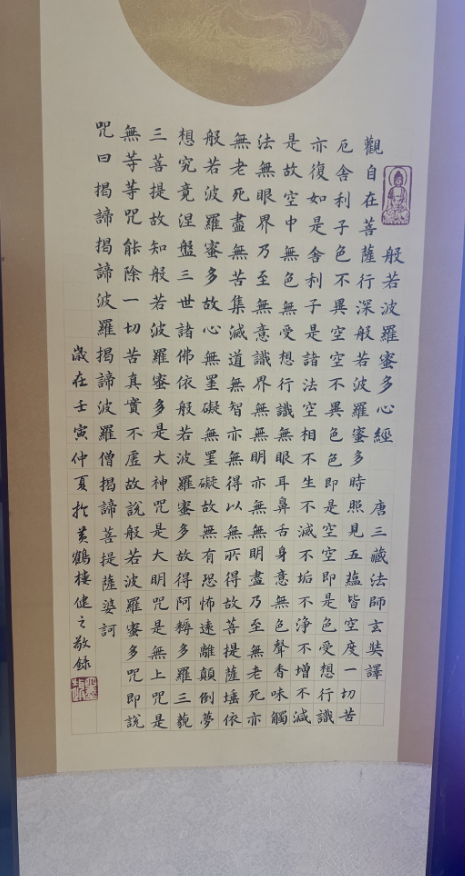 般若波羅蜜多心經 唐三藏法師玄奘譯
觀自在菩薩行深般若波羅蜜多時照見五蘊皆空度一切苦
厄舍利子色不異空空不異色色即是空空即是色受想行識
亦復如是舍利子是諸法空相不生不滅不垢不淨不增不減
是故空中無色無受想行識無眼耳鼻舌身意無色聲香味觸
法無眼界乃至無意識界無無明亦無無明盡乃至無老死亦
無老死盡無苦集滅道無智亦無得以無所得故菩提薩埵依
般若波羅蜜多故心無罣礙無罣礙故無有恐怖遠離顛倒夢
想究竟涅盤三世諸佛依般若波羅蜜多故得阿耨多羅三藐
三菩提故知般若波羅蜜多是大神咒是大明咒是無上咒是
無等等咒能除一切苦真實不虛故說般若波羅蜜多咒即說
咒曰揭諦揭諦波羅揭諦波羅僧揭諦菩提薩婆訶
歲在壬寅仲夏於黃鶴樓健之敬錄